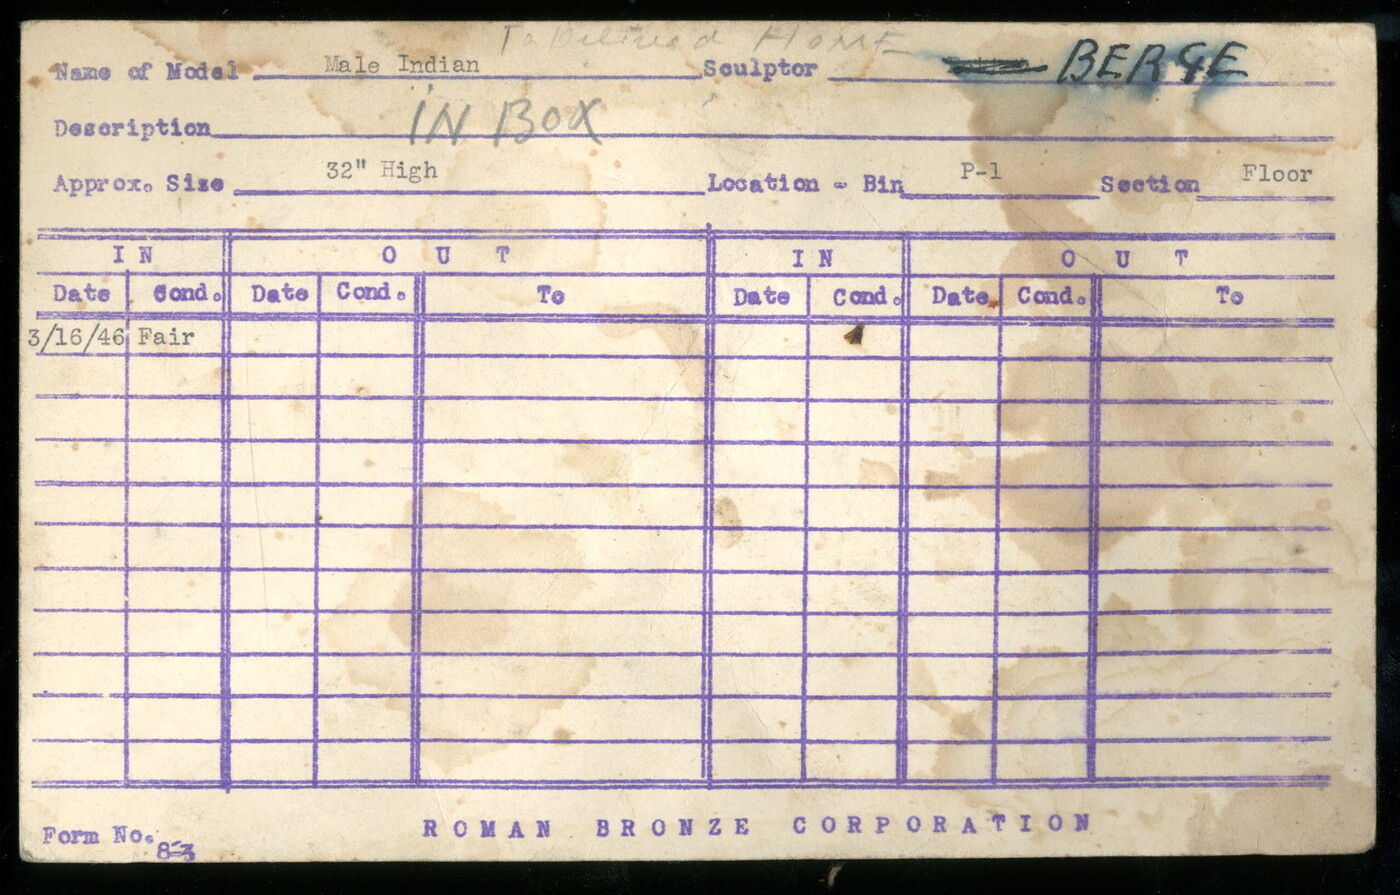 To Delivered HOME
Name of Model Male Indian Sculptor BERGE
Description IN BOX
Approx. Size 32" High Location - Bin P-1 Section Floor
IN OUT IN OUT
Date Cond. Date Cond. To Date Cond. Date Cond. To
3/16/46 Fair
Form No. 83 ROMAN BRONZE CORPORATION